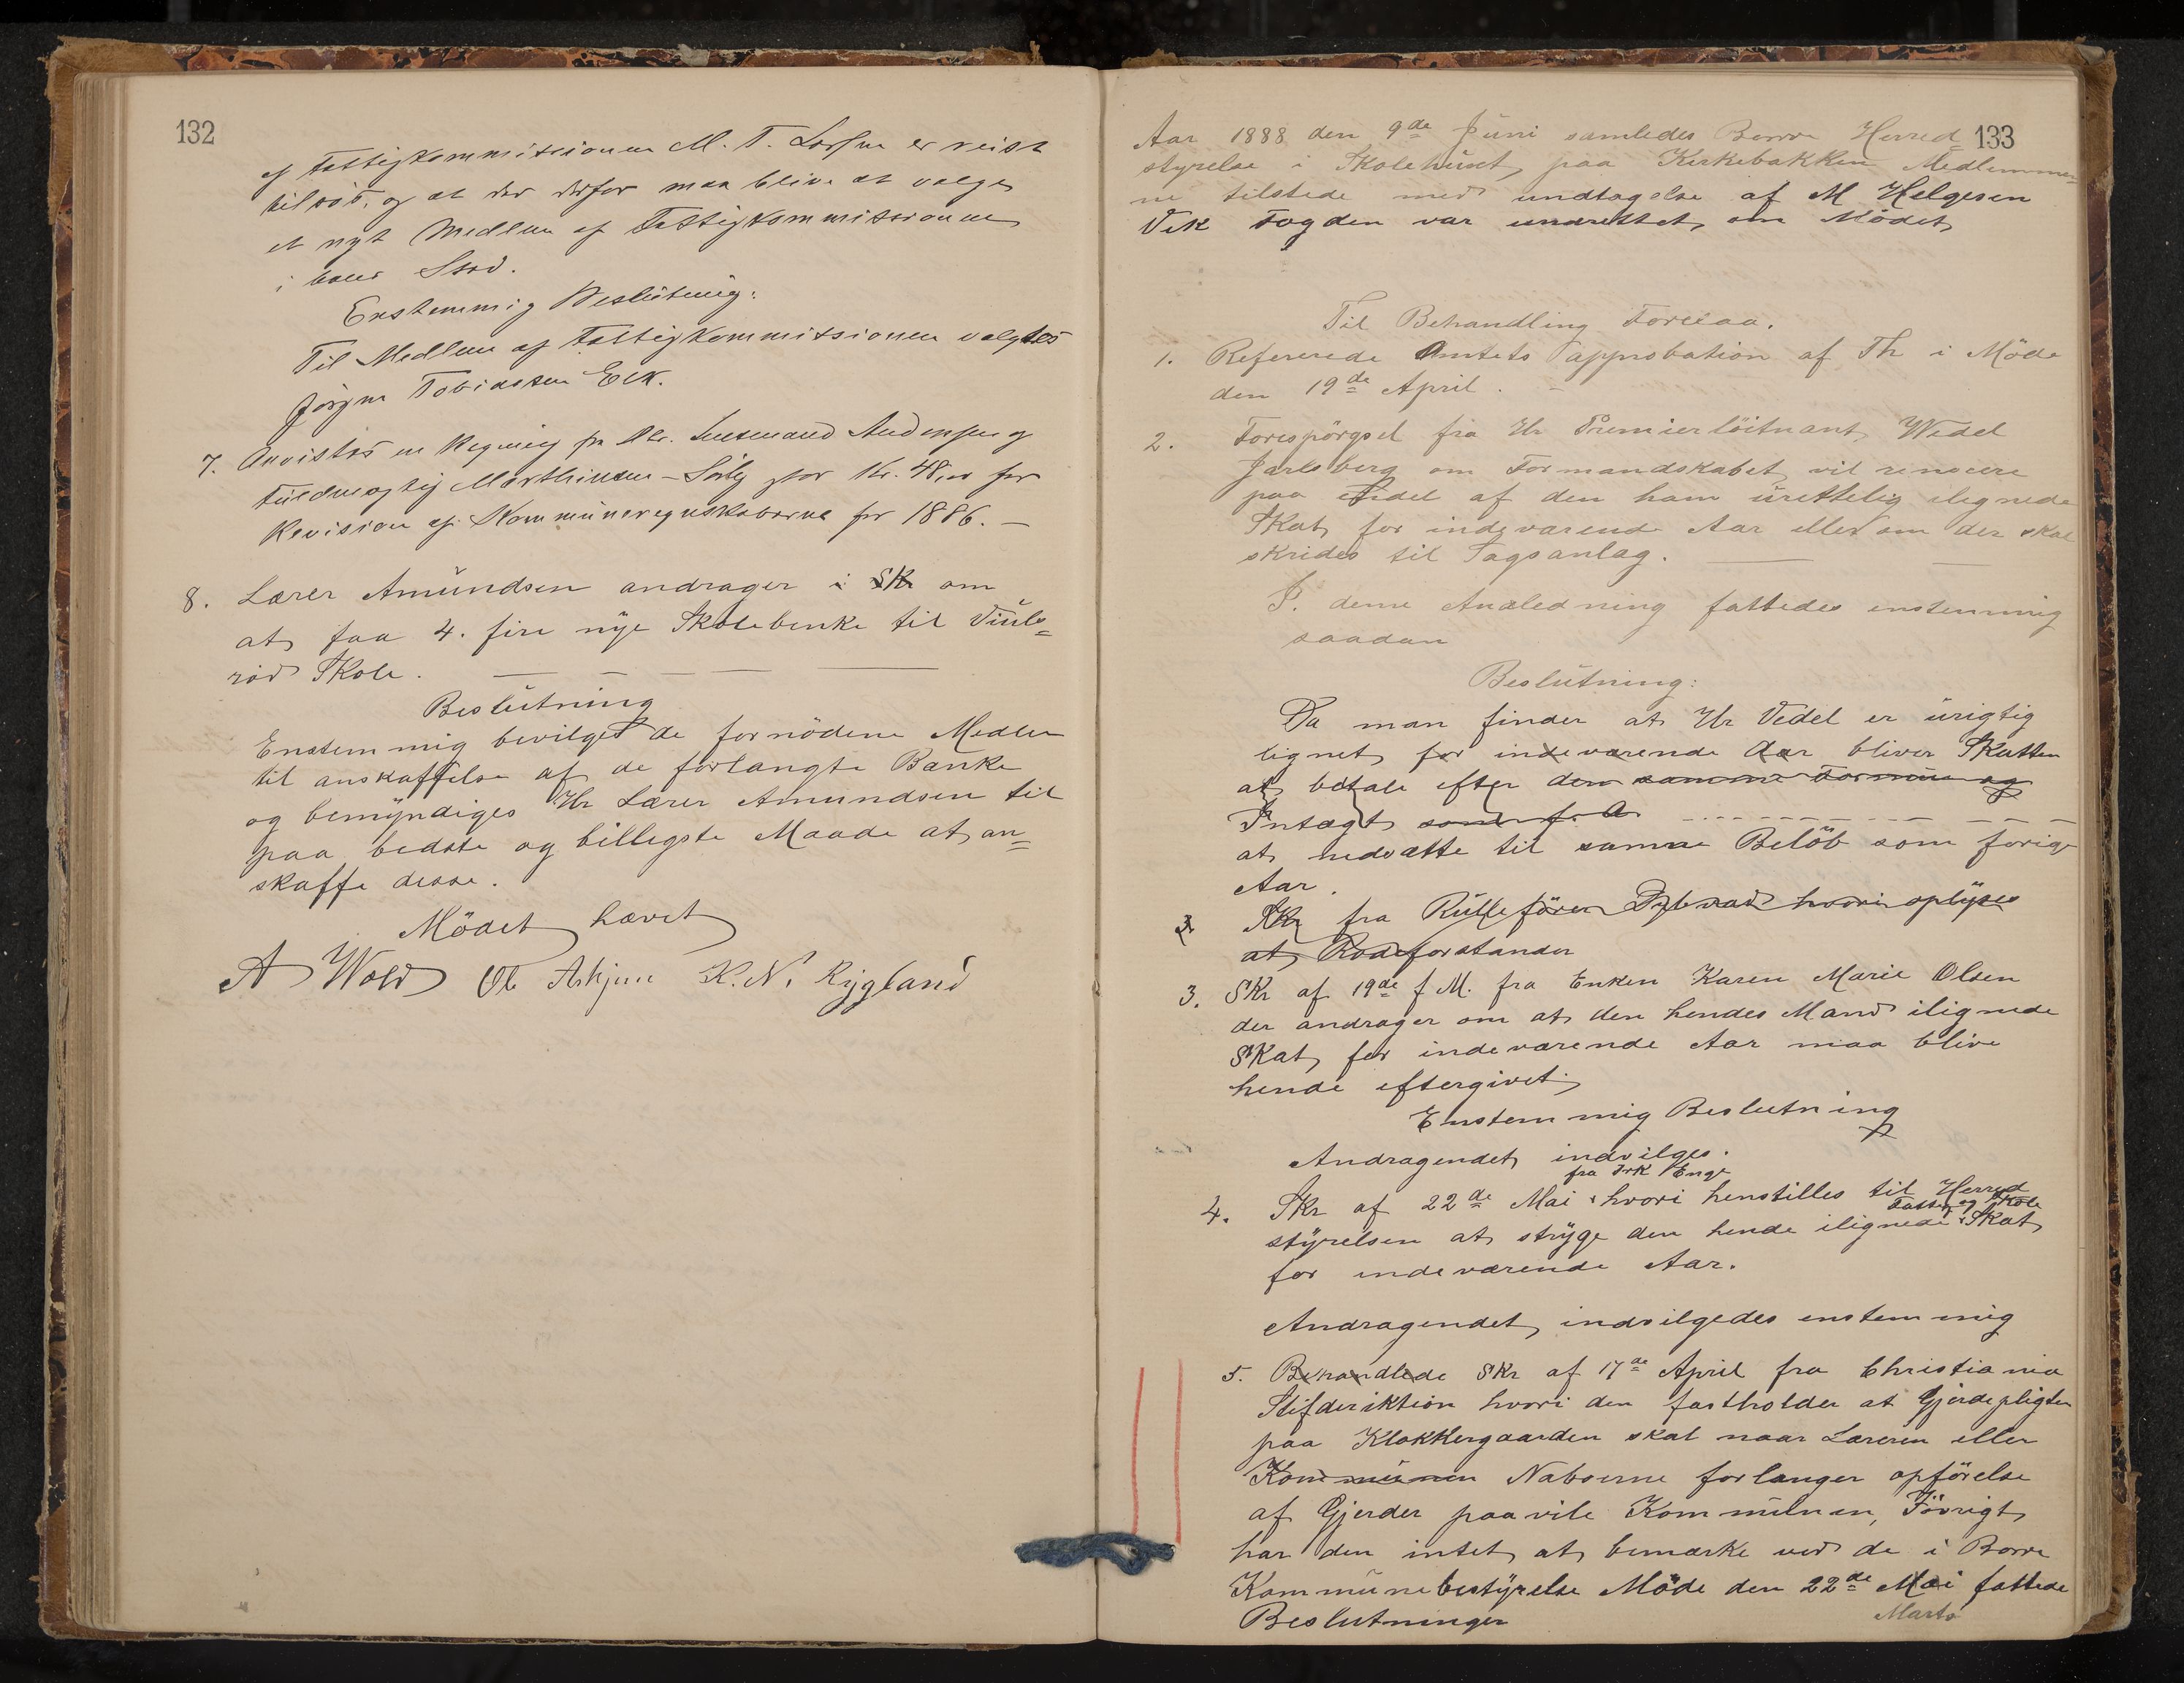 132
af Fattigkommissionen M. T. er reist
tilsös, og at der derfor maa blive at valge
et nyt Medlem af Fattigkommissionen
i hans Sted.
Enstemmig Beslutning:
Til Medlem af Fattigkommissionen valgtes
Jörgen Tobiassen Eek.
7. Anvistes en Regning fra Lensmand Andersen og
Fuldmægtig Marthinsen – stor Kr. 48,00 for
Revision af Kommuneregnskaberne for 1886. –
8. Lærer Amundsen andrager i Skr om
at faa 4. fire nye Skolebenke til Viuls=
röd Skole.
Beslutning
Enstemmig bevilget de fornödene Medler
til anskaffelse af de forlangte Bænke
og bemyndiges Hr Lærer Amundsen til
paa bedste og billigste Maade at an=
skaffe desse.
Mödet hævet
A Wold Ole K. N. Rygland
133
Aar 1888 den 9de Juni samledes Borre Herred
styrelse i Skolehuset paa Kirkebakken Medlemme=
ne tilstede med undtagelse af M Helgesen
Vik Fogden var underettet om Mödet
Til Behandling Forelaa.
1. Refererede Amtets approbation af Th i Möde
den 19de April. –
2. Forespörgsel fra Hr Premierlöitnant Wedel
Jarlsberg om Formandskabet vil renocere
paa endel af den ham urettelig ilignede
Skat for indeværende Aar eller om der skal
skrides til Sagsanlæg.
I denne Anledning fattedes enstemmig
saadan
Beslutning:
Da man finder at Hr Vedel er urigtig
lignet for indeværende Aar bliver Skatten
at betale efter den samme Formue og
Intægt som f. A.
at nedsætte til samme Belöb som forige
Aar.
3 Skr fra Rulleförer Dybvad hvori oplyses
at Rodeforstander
3. Skr af 19de f M. fra Enken Karen Marie Olsen
der andrager om at den hendes Mand ilignede
Skat for indeværende Aar maa blive
hende eftergivet.
Enstemmig Beslutning
Andragendet indvilges.
fra Frk Enge
4. Skr af 22de Mai hvori henstilles til Herred
Fattig og Skole
styrelsen at stryge den hende ilignede Skat
for indeværende Aar.
Andragendet indvilgedes enstemmig
5. Behandlede Skr af 17de April fra Christiania
Stifderiktion hvori den fastholder at Gjerdepligten
paa Klokkergaarden skal naar Læreren eller
Kommunen Naboerne forlanger opförelse
af Gjerder paavile Kommunen, Iövrigt
har den intet at bemærke ved de i Borre
Kommunebestyrelse Möde den 22de Mai fattede
Marts
Beslutninger